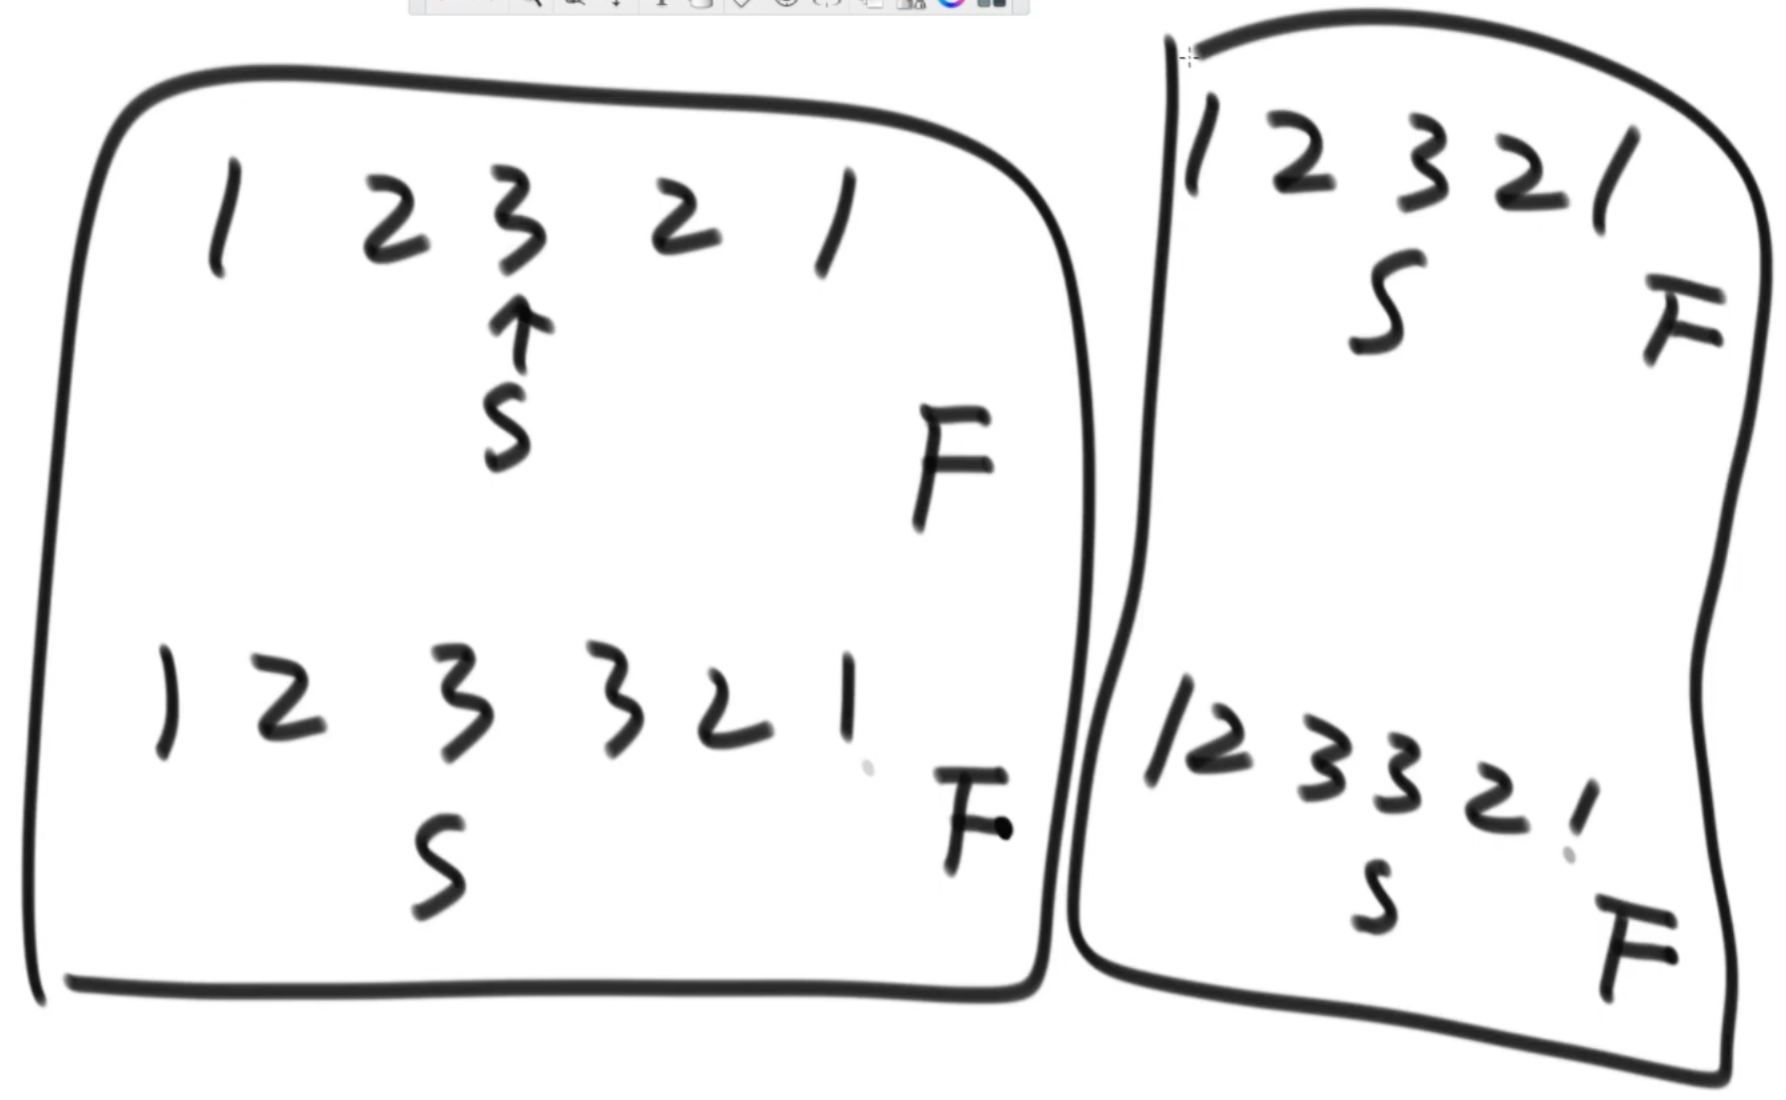 1 2 3 2 1
S
F
1 2 3 3 2 1
S
F
1 2 3 2 1
S
F
1 2 3 3 2 1
S
F